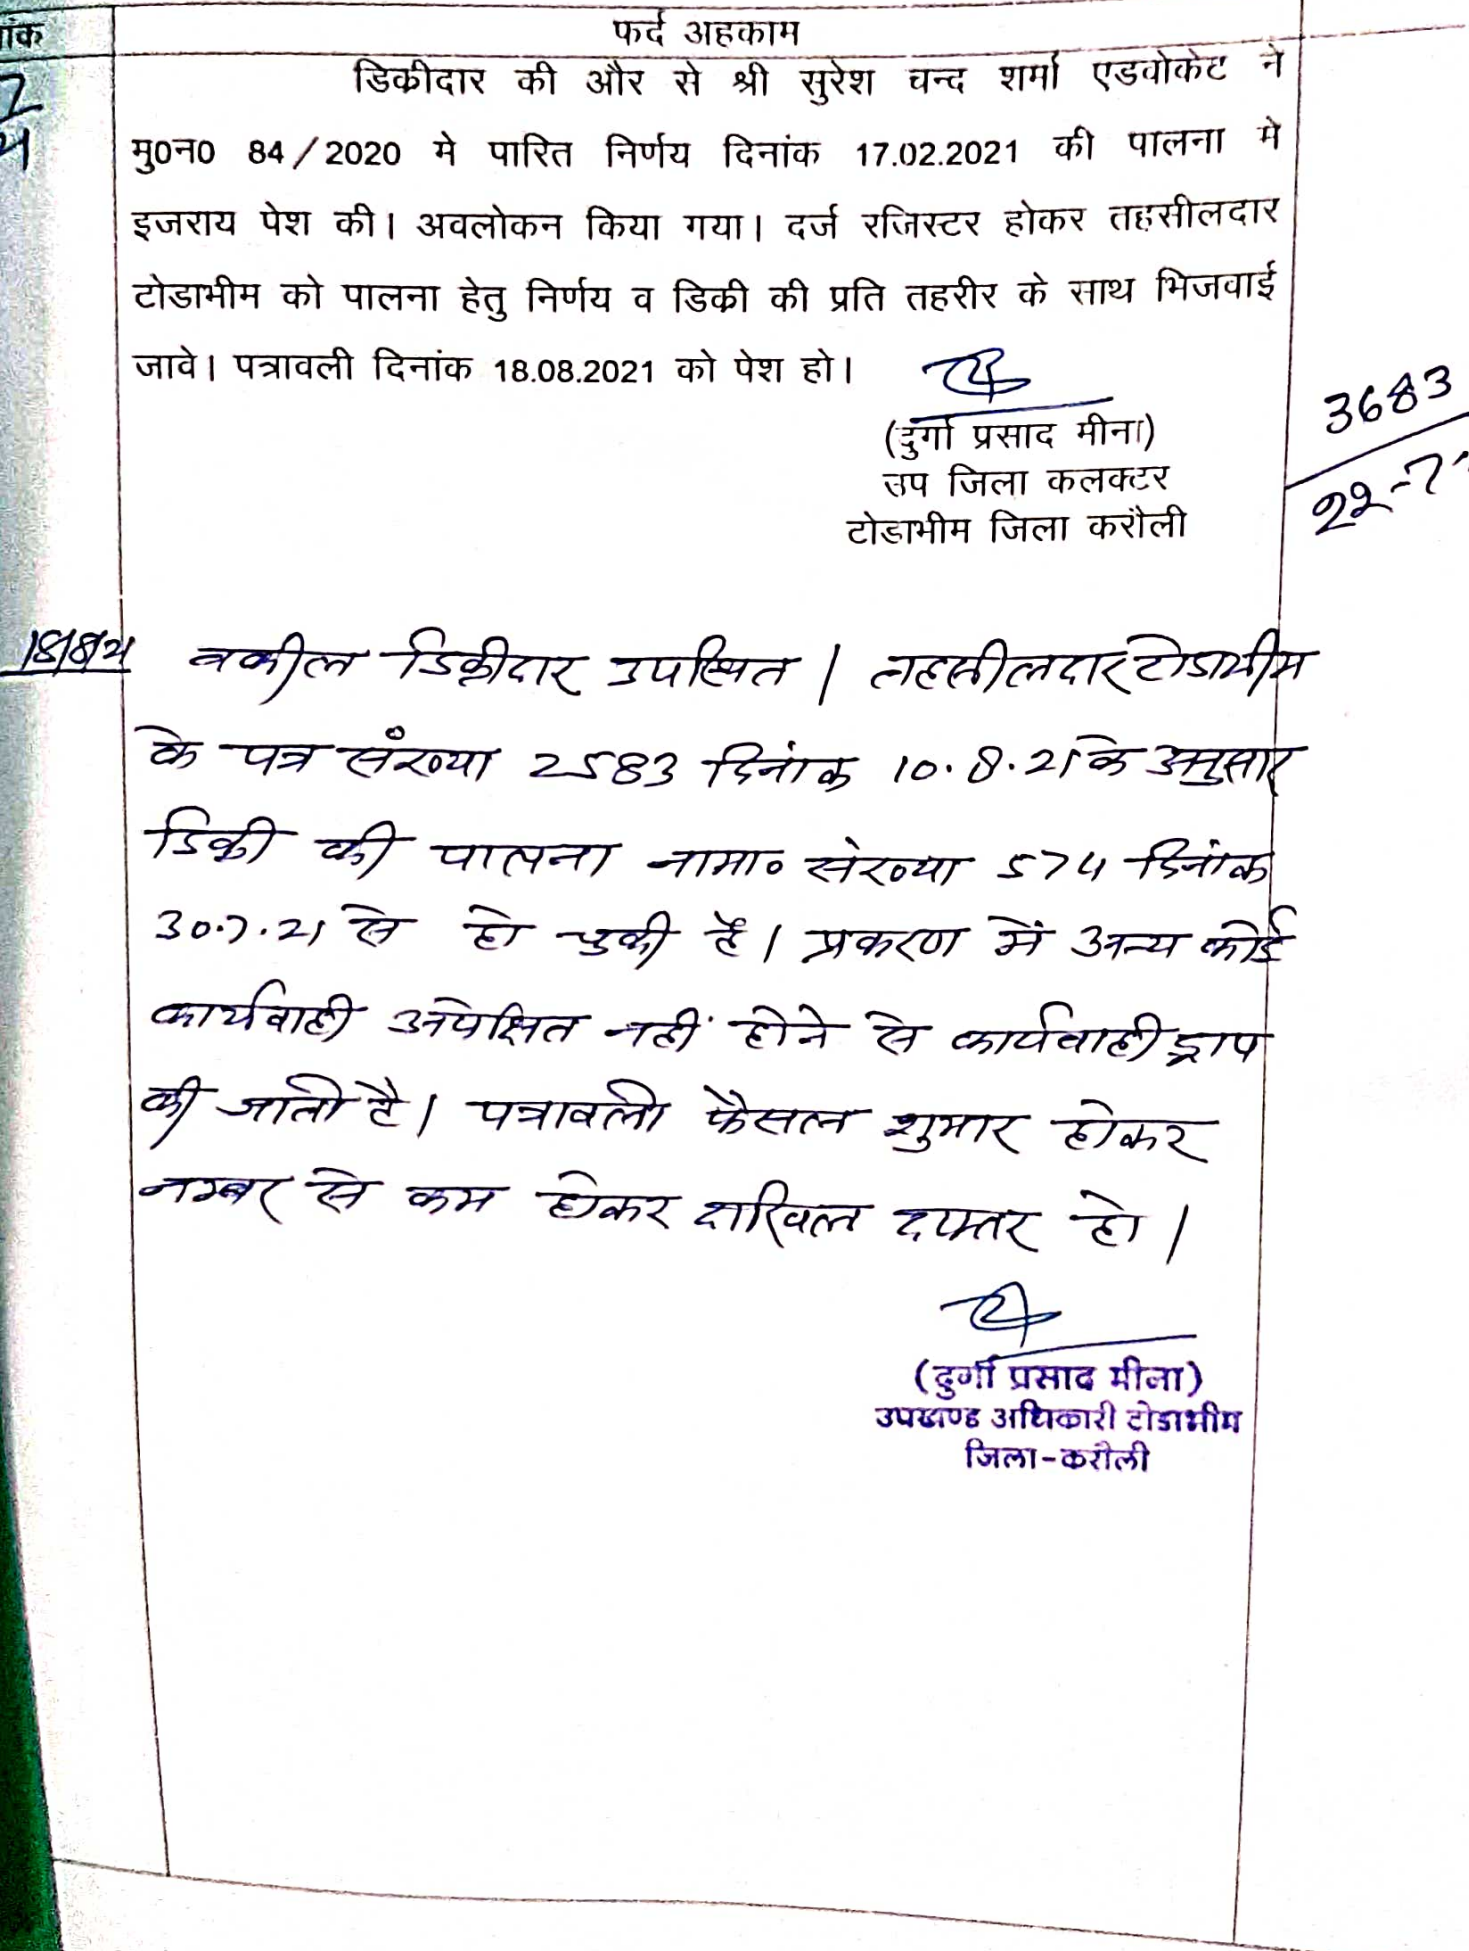 फर्द अहकाम
डिकीदार की और से श्री सुरेश चन्द शर्मा एडवोकेट ने
मु0न0 84/2020 मे पारित निर्णय दिनांक 17.02.2021 की पालना मे
इजराय पेश की। अवलोकन किया गया। दर्ज रजिस्टर होकर तहसीलदार
टोडाभीम को पालना हेतु निर्णय व डिकी की प्रति तहरीर के साथ भिजवाई
जावे। पत्रावली दिनांक 18.08.2021 को पेश हो।
(दुर्गा प्रसाद मीना)
उप जिला कलक्टर
टोडाभीम जिला करौली
3683
22-7
18/8/21 वकील डिक्रीदार उपस्थित। तहसीलदार टोडाभीम
के पत्र संख्या 2583 दिनांक 10.8.21 के अनुसार
डिक्री की पालना नामा० संख्या 574 दिनांक
30.7.21 से हो चुकी है। प्रकरण में अन्य कोई
कार्यवाही अपेक्षित नहीं होने से कार्यवाही ड्राप
की जाती है। पत्रावली फैसल शुमार होकर
नम्बर से कम होकर दाखिल दफ्तर हो।
(दुर्गा प्रसाद मीना)
उपखण्ड अधिकारी टोडाभीम
जिला-करौली